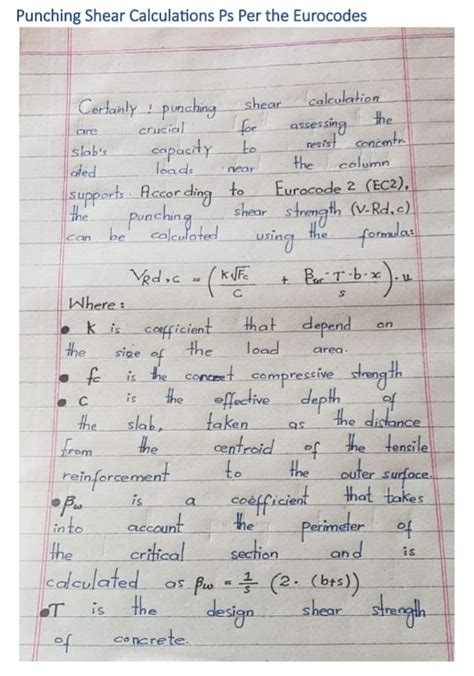 Punching Shear Calculations Ps Per the Eurocodes
Certainly ! punching shear calculation
are crucial for assessing the
slab's capacity to resist concentr-
ated loads near the column
supports. According to Eurocode 2 (EC2),
the punching shear strength (V-Rd,c)
can be calculated using the formula:
VRd,c = ( k√Fc / c + βw·T·b·x / s )·u
Where :
• k is coefficient that depend on
the size of the load area.
• fc is the concreet compressive strength
• c is the effective depth of
the slab, taken as the distance
from the centroid of the tensile
reinforcement to the outer surface.
• βw is a coefficient that takes
into account the perimeter of
the critical section and is
calculated as βw = 1/s (2. (b+s))
• T is the design shear strength
of concrete.